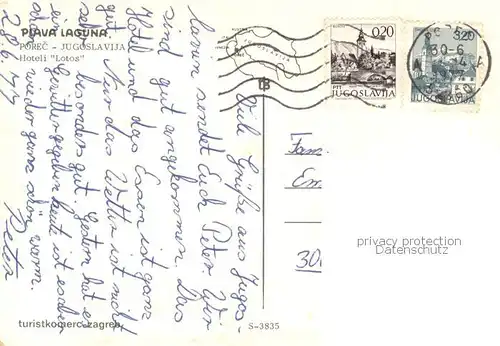 PLAVA LAGUNA,
POREČ - JUGOSLAVIJA
Hoteli "Lotos"
28.6.77
Viele Grüße aus Jugos-
lavien sendet Euch Peter. Wir
sind gut angekommen. Das
Hotel und das Essen ist ganz
gut. Nur das Wetter ist nicht
besonders gut. Gestern hat es
gegeben heute ist es aber
wieder ganz schön warm.
Peter
turistkomerc-zagreb
S-3835
0,20
JUGOSLAVIJA
3,20
JUGOSLAVIJA
30-6
Fam.
30
privacy protection
Datenschutz